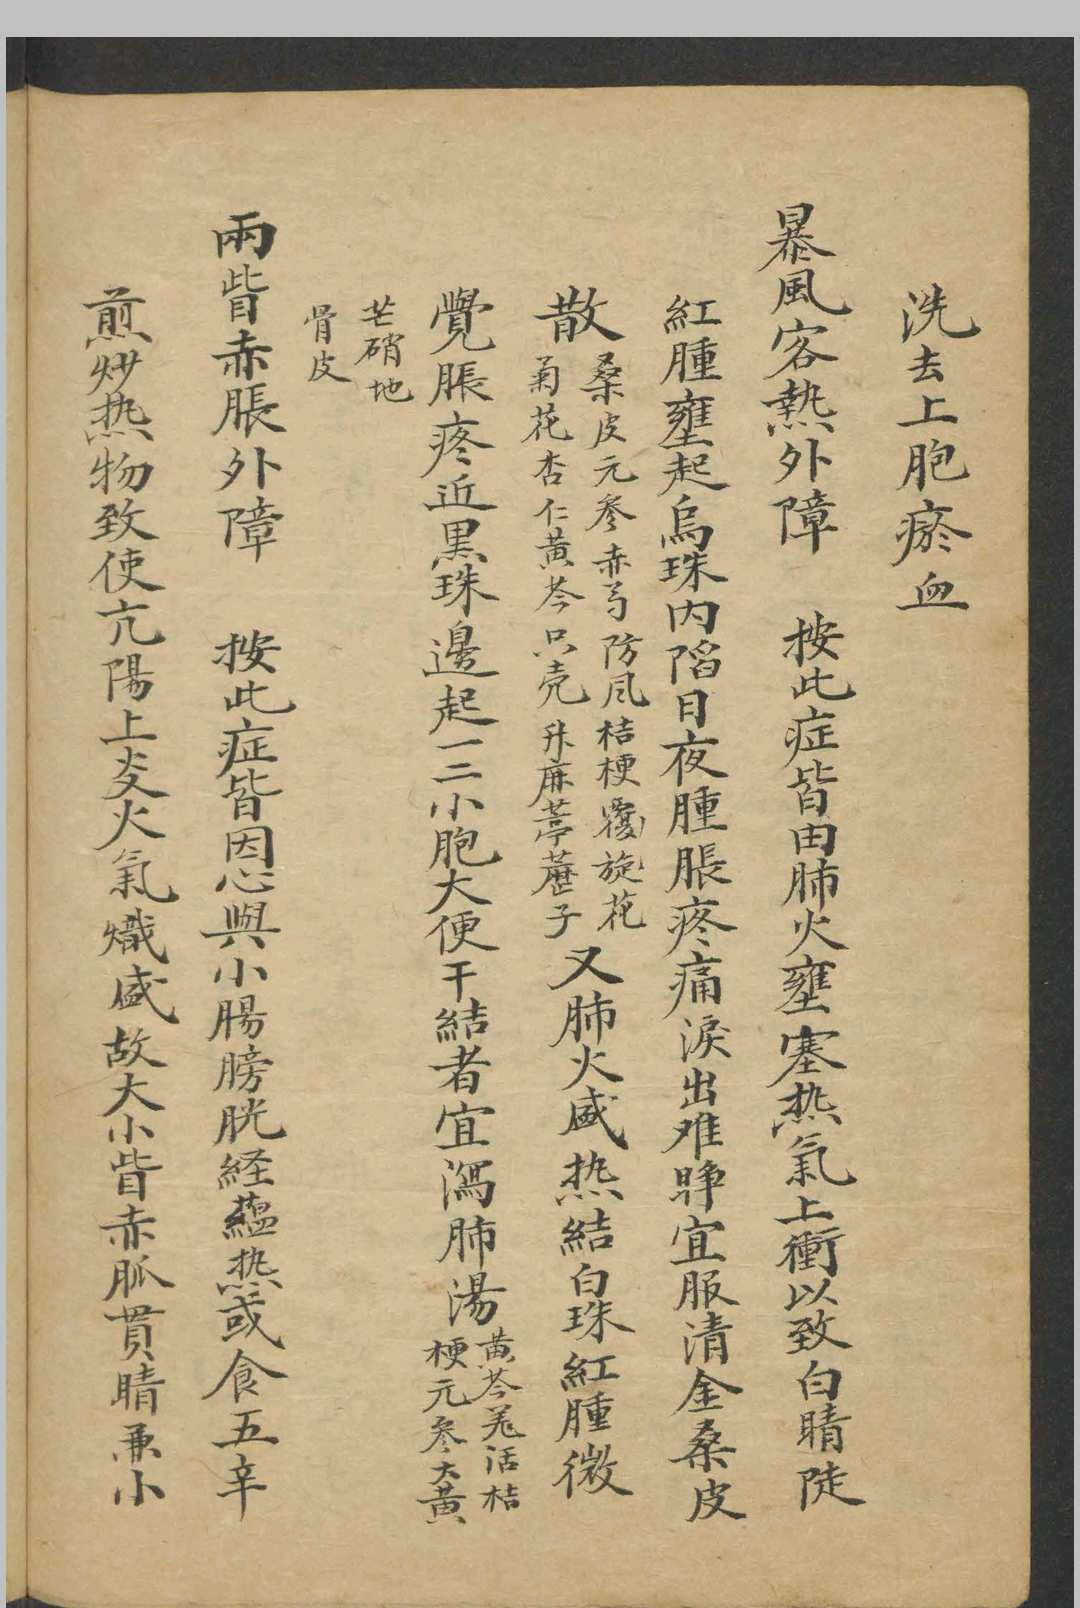 洗去上胞瘀血
暴風客熱外障　按此症皆由肺火壅塞热氣上衝以致白睛陡
紅腫壅起烏珠内陷日夜腫脹疼痛淚出难睁宜服清金桑皮
散
桑皮元參赤芍防风桔梗覆旋花
菊花杏仁黄芩只壳升麻葶藶子
又肺火盛热結白珠紅腫微
覺脹疼近黒珠邊起一二小胞大便干結者宜瀉肺湯
黄芩羌活桔
梗元參大黄
芒硝地
骨皮
兩眥赤脹外障　按此症皆因心與小腸膀胱経蘊热或食五辛
煎炒热物致使亢陽上炎火氣熾盛故大小眥赤脉貫睛兼小